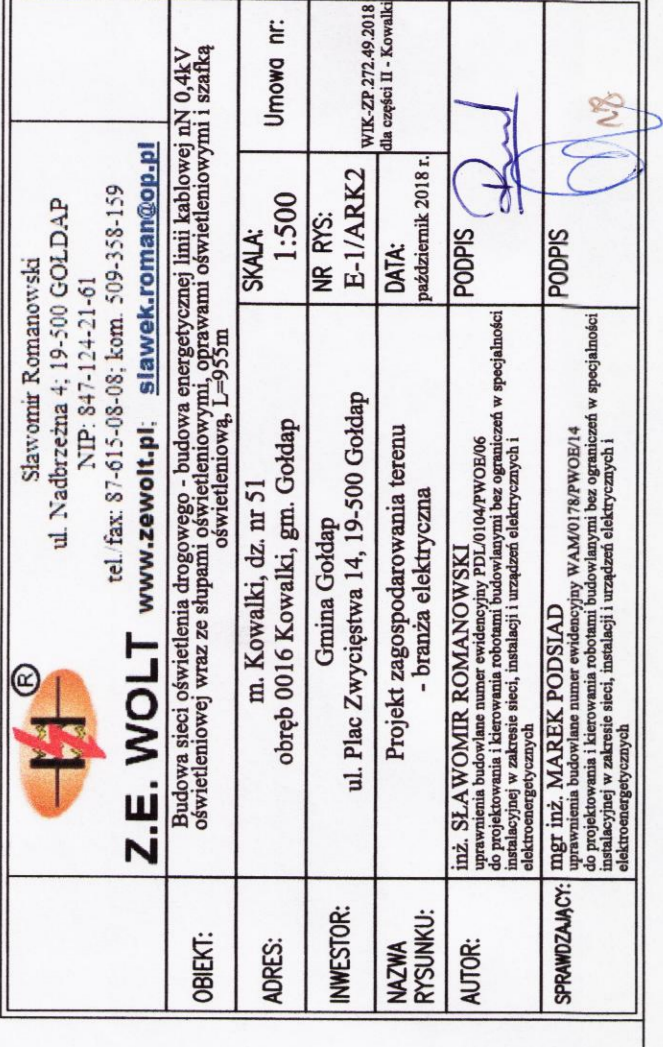 ®
Z.E. WOLT
Sławomir Romanowski
ul. Nadbrzeżna 4; 19-500 GOŁDAP
NIP: 847-124-21-61
tel./fax: 87-615-08-08; kom. 509-358-159
www.zewolt.pl; slawek.roman@op.pl
OBIEKT:
Budowa sieci oświetlenia drogowego - budowa energetycznej linii kablowej nN 0,4kV
oświetleniowej wraz ze słupami oświetleniowymi, oprawami oświetleniowymi i szafką
oświetleniową, L=955m
ADRES:
m. Kowalki, dz. nr 51
obręb 0016 Kowalki, gm. Gołdap
SKALA:
1:500
Umowa nr:
WIK-ZP.272.49.2018
dla części II - Kowalki
INWESTOR:
Gmina Gołdap
ul. Plac Zwycięstwa 14, 19-500 Gołdap
NR RYS:
E-1/ARK2
NAZWA
RYSUNKU:
Projekt zagospodarowania terenu
- branża elektryczna
DATA:
październik 2018 r.
AUTOR:
inż. SŁAWOMIR ROMANOWSKI
uprawnienia budowlane numer ewidencyjny PDL/0104/PWOE/06
do projektowania i kierowania robotami budowlanymi bez ograniczeń w specjalności
instalacyjnej w zakresie sieci, instalacji i urządzeń elektrycznych i
elektroenergetycznych
PODPIS
SPRAWDZAJĄCY:
mgr inż. MAREK PODSIAD
uprawnienia budowlane numer ewidencyjny WAM/0178/PWOE/14
do projektowania i kierowania robotami budowlanymi bez ograniczeń w specjalności
instalacyjnej w zakresie sieci, instalacji i urządzeń elektrycznych i
elektroenergetycznych
PODPIS